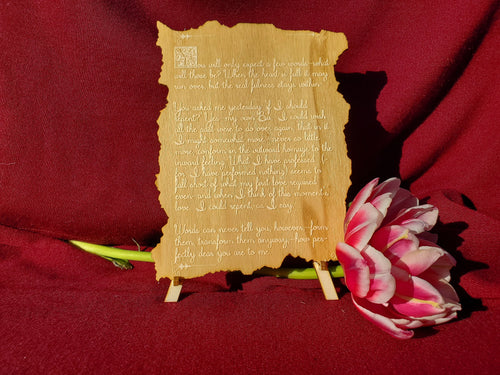 You will only expect a few words—what
will those be? When the heart is full it may
run over, but the real fulness stays within.
You asked me yesterday 'if I should
repent?' Yes—my own Ba—I could wish
all the past were to do over again, that in it
I might somewhat more,—never so little
more, conform in the outward homage to the
inward feeling. What I have professed,
(for I have performed nothing) seems to
fall short of what my first love required
even—and when I think of this moment's
love, I could repent, as I say.
Words can never tell you, however,—form
them, transform them anyway,—how per-
fectly dear you are to me